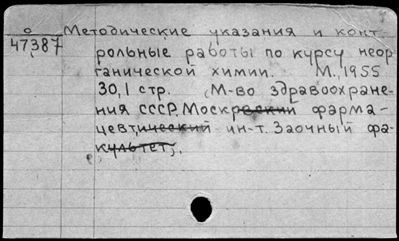 Методические указания и конт
47387 рольные работы по курсу неор
ганической химии. М., 1955
30,1 стр. (М-во здравоохране-
ния СССР. Московский фарма-
цевтический ин-т. Заочный фа-
культет).